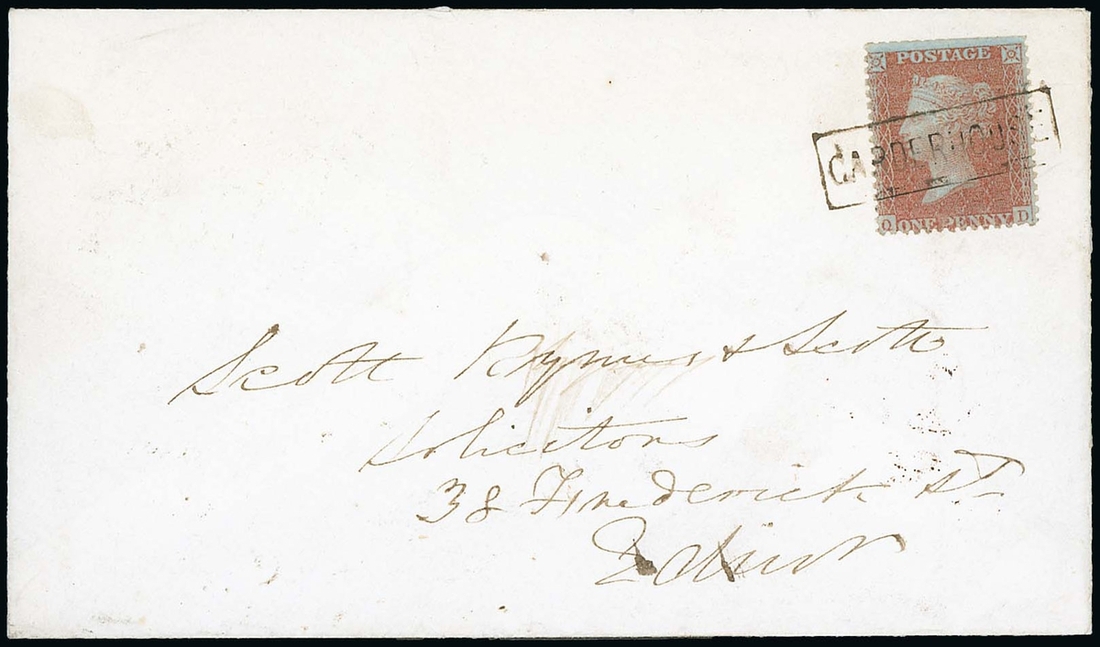 POSTAGE
CARDERHOUSE
Q ONE PENNY D
Scott Rymer & Scott
Solicitors
38 Frederick St
Edinr